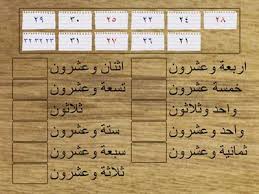 ٢٨ ٢٤ ٢٢ ٢٥ ٣٠ ٢٩
٢١ ٢٦ ٢٧ ٣١ ٢٣ ٢٣ ٢٣
اربعة وعشرون
خمسة عشرون
واحد وثلاثون
واحد وعشرون
ثمانية وعشرون
اثنان وعشرون
تسعة وعشرون
ثلاثون
ستة وعشرون
سبعة وعشرون
ثلاثة وعشرون